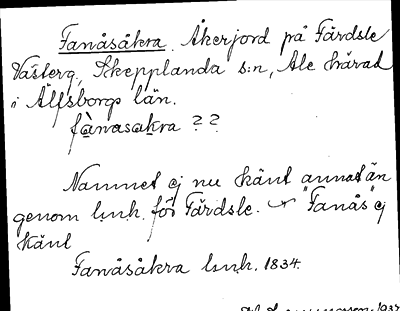 Fanåsåkra. Åkerjord på Färdsle
Västerg, Skepplanda s:n, Ale härad
i Älfsborgs län.
fànasakra ??
Namnet ej nu känt annat än
genom l.m.h. för Färdsle. "Fanås" ej
känt
Fanåsåkra l.m.h. 1834.
1937